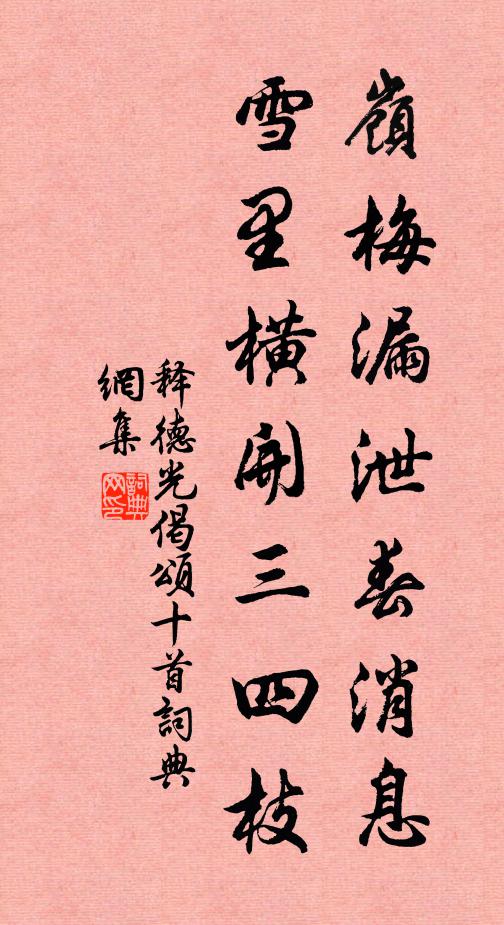 嶺梅漏泄春消息
雪里橫開三四枝
释德光偈頌十首詞典
網集
詞典網印